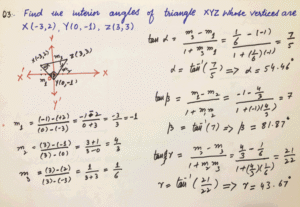 Q3. Find the interior angles of triangle XYZ whose vertices are
X(-3,2), Y(0,-1), Z(3,3)
Y
X(-3,2)
Z(3,3)
m3
m1
m2
X' X
Y(0,-1)
Y'
m1 = (-1)-(+2) / (0)-(-3) = -3/3 = -1
m2 = (3)-(-1) / (3)-(0) = 3+1 / 3-0 = 4/3
m3 = (3)-(2) / (3)-(-3) = 1 / 3+3 = 1/6
tan α = m3 - m1 / 1 + m3 m1 = 1/6 - (-1) / 1 + (1/6)(-1) = 7/5
α = tan⁻¹(7/5) => α = 54.46°
= -1 - 4/3 / 1 + (-1)(4/3) = 7
β = tan⁻¹(7) => β = 81.87°
= 4/3 - 1/6 / 1 + (4/3)(1/6) = 21/22
r = tan⁻¹(21/22) => r = 43.67°